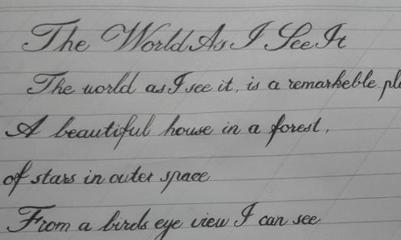 The World As I See It
The world as I see it, is a remarkeble pl
A beautiful house in a forest,
of stars in outer space
From a birds eye view I can see